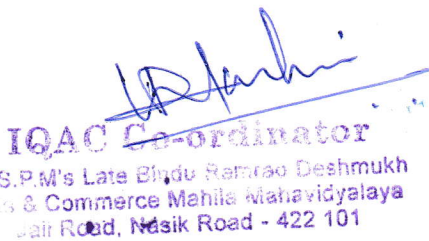 IQAC Co-ordinator
S.P.M's Late Bindu Ramrao Deshmukh
& Commerce Mahila Mahavidyalaya
Road, Nasik Road - 422 101